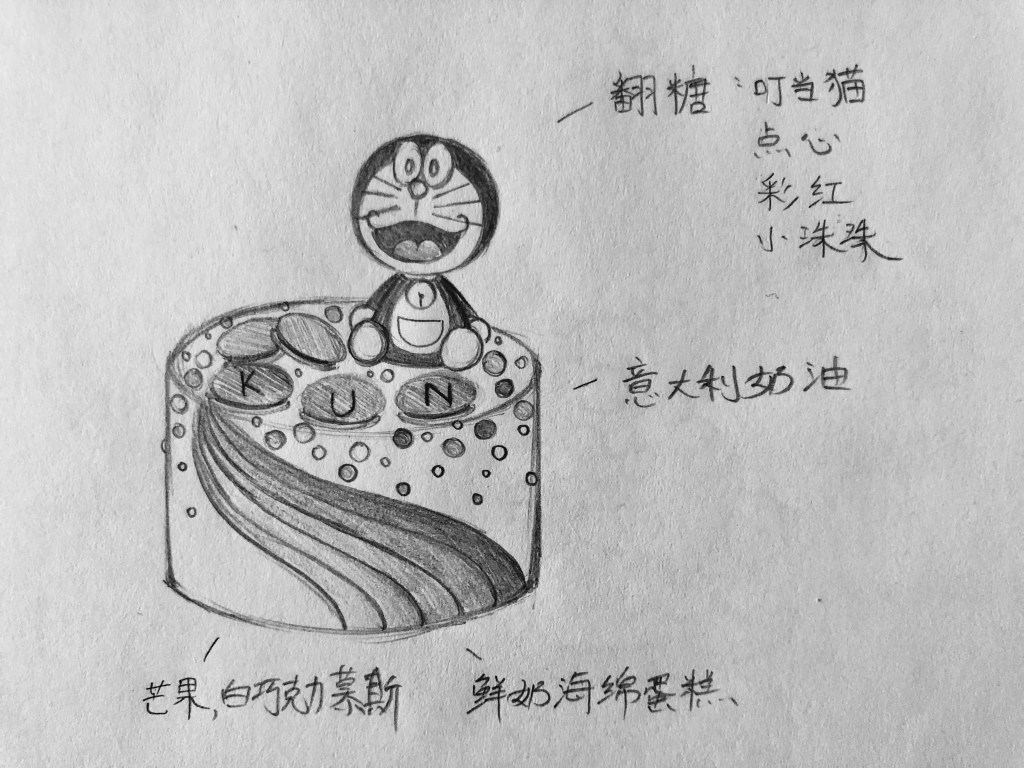 翻糖：叮当猫
点心
彩红
小珠珠
意大利奶油
K U N
芒果，白巧克力慕斯
鲜奶海绵蛋糕、